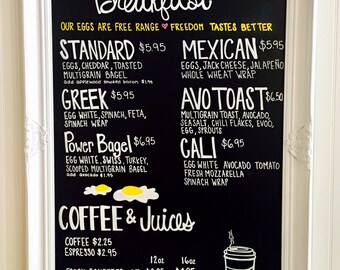 Breakfast
OUR EGGS ARE FREE RANGE FREEDOM TASTES BETTER
STANDARD $5.95
EGGS, CHEDDAR, TOASTED
MULTIGRAIN BAGEL
Add applewood smoked bacon $1.95
GREEK $5.95
EGG WHITE, SPINACH, FETA,
SPINACH WRAP
Power Bagel $6.95
EGG WHITE, SWISS, TURKEY,
SCOOPED MULTIGRAIN BAGEL
Add avocado $1.95
MEXICAN $5.95
EGGS, JACK CHEESE, JALAPEÑO
WHOLE WHEAT WRAP
AVO TOAST $6.50
MULTIGRAIN TOAST, AVOCADO,
SEASALT, CHILI FLAKES, EVOO,
EGG, SPROUTS
CALI $6.95
EGG WHITE AVOCADO TOMATO
FRESH MOZZARELLA
SPINACH WRAP
COFFEE & Juices
COFFEE $2.25
ESPRESSO $2.95
12oz 16oz